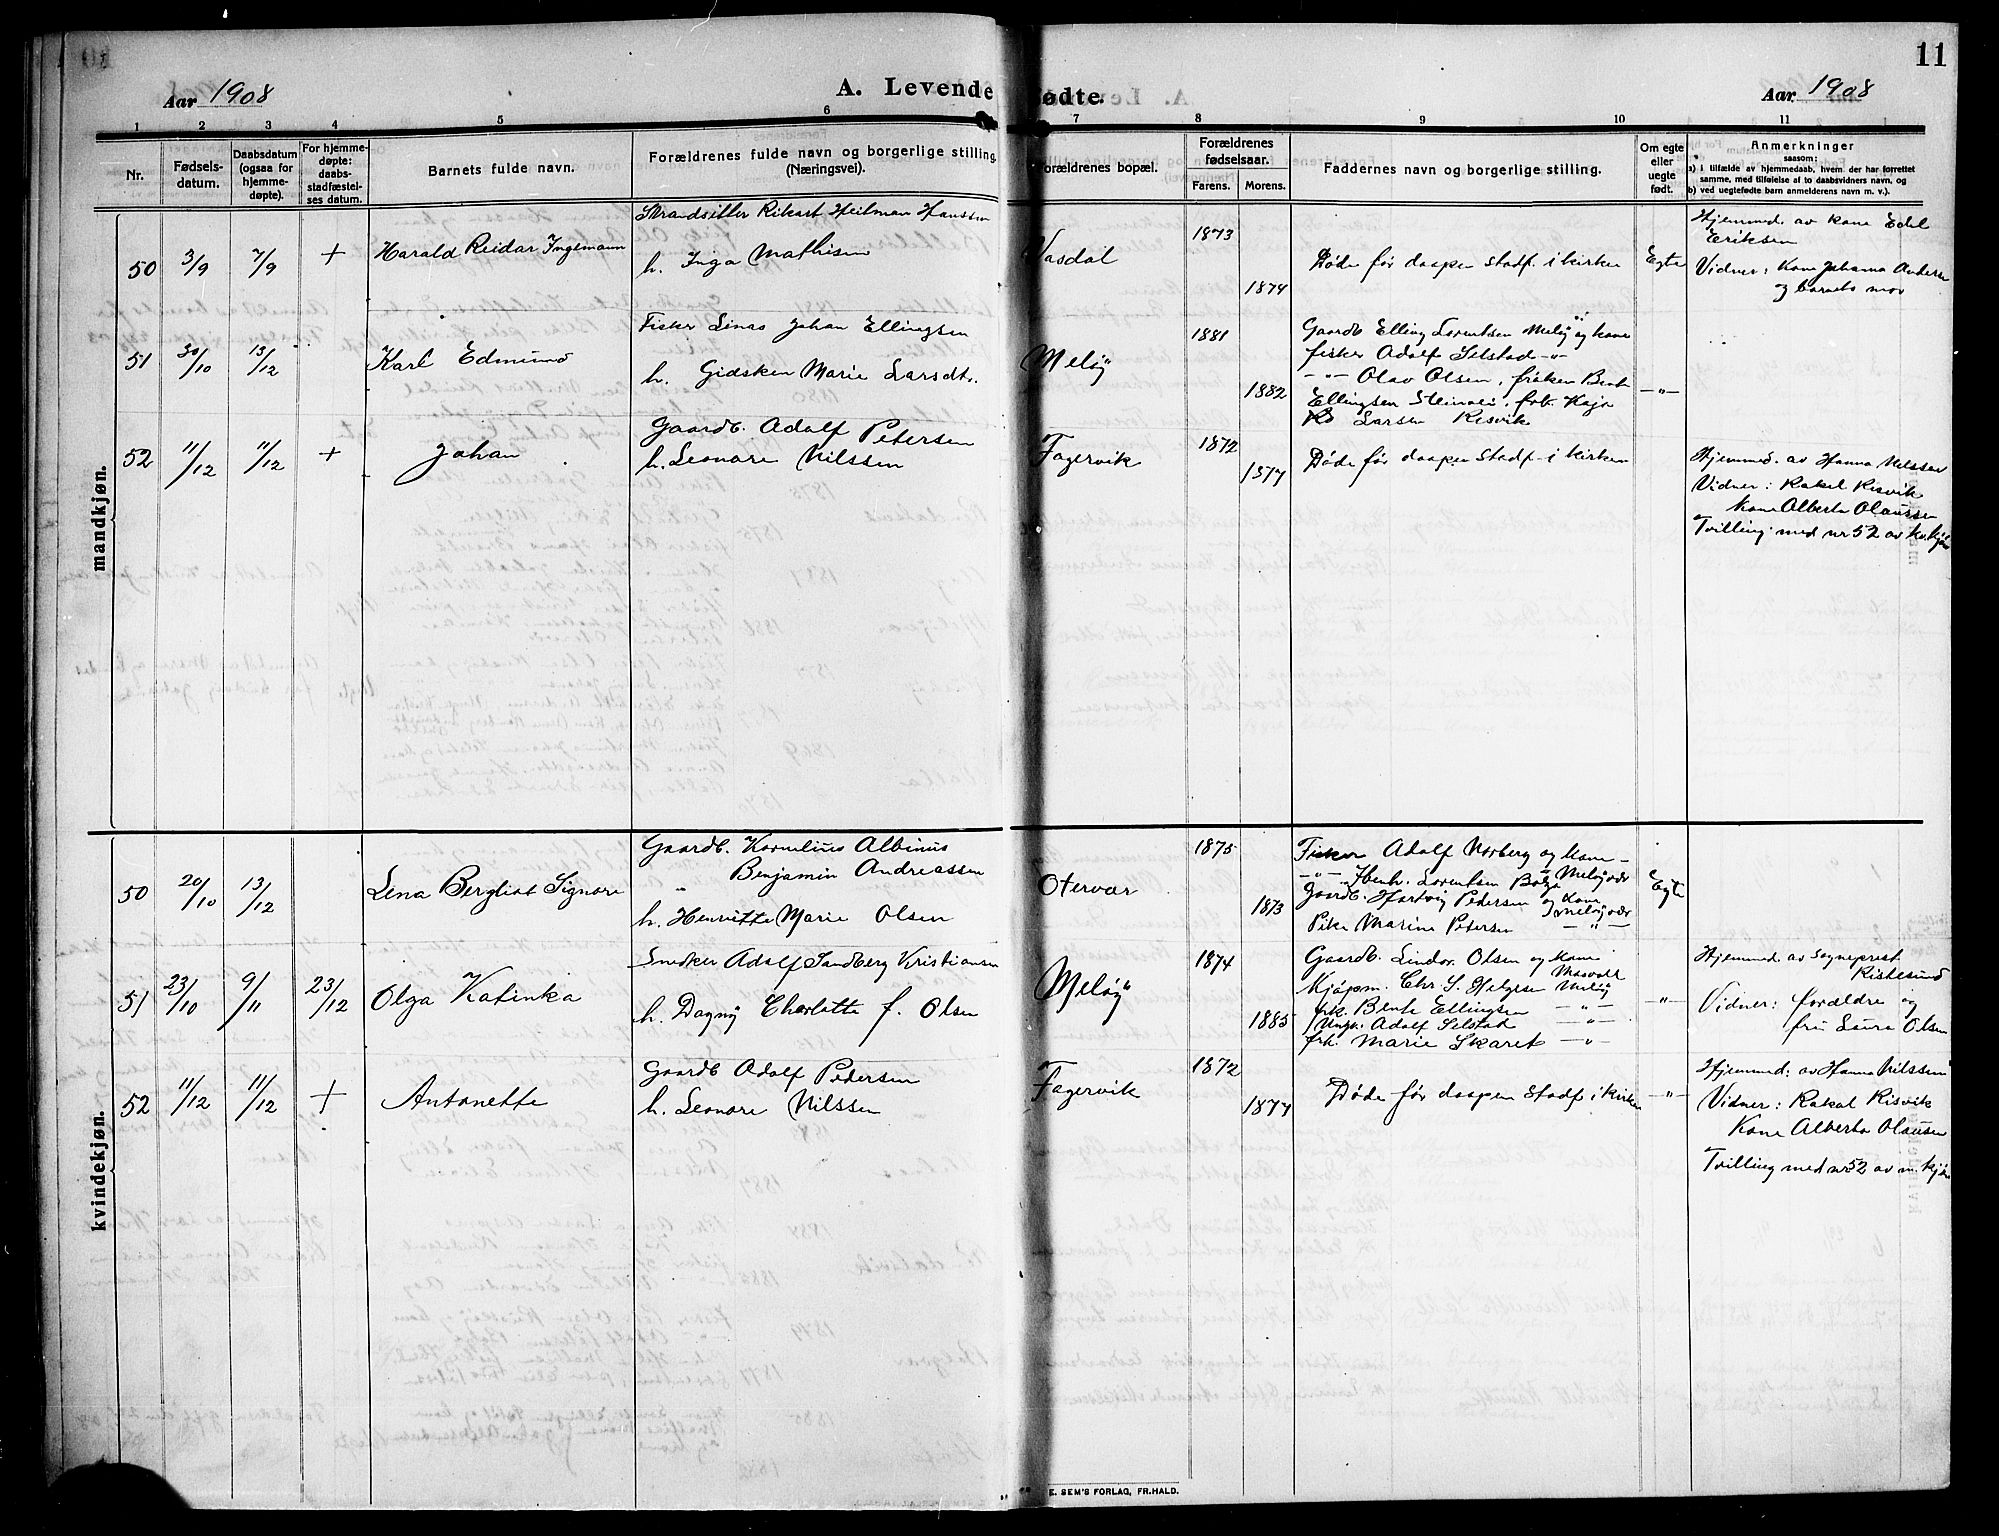 11
Aar 1908
A. Levende fødte.
Aar 1908
1 2 3 4 5 6 7 8 9 10 11
Nr.
Fødsels-
datum.
Daabsdatum
(ogsaa for
hjemme-
døpte).
For hjemme-
døpte:
daabs-
stadfæstel-
ses datum.
Barnets fulde navn.
Forældrenes fulde navn og borgerlige stilling.
(Næringsvei).
Forældrenes bopæl.
Forældrenes
fødselsaar.
Farens. Morens.
Faddernes navn og borgerlige stilling.
Om egte
eller
uegte
født.
Anmerkninger
saasom:
a) i tilfælde av hjemmedaab, hvem der har forrettet
samme, med tilføielse af to daabsvidners navn, og
b) ved uegtefødte barn anmelderens navn m. v.).
mandkjøn.
50 3/9 7/9 + Harald Reidar Ingemann
Strandsitter Rikart Heitman Hanssen
h. Inga Mathisen
Vasdal
1873
1874
Døde før daapen stadf. i kirken
Egte
Hjemmed. av kone Edel
Eriksen
Vidner: Kone Johanna Anderse
og barnets mor
51 30/10 13/12 Karl Edmund
Fisker Linas Johan Ellingsen
h. Gidsken Marie Larsdt.
Meløy
1881
1882
Gaardb. Elling Lorentsen Meløy og kone
fisker Adolf Selstad -"-
-"- Olav Olsen, frøken Bente
Ellingsen Steinvei, frk. Kaja
Larsen Risvik
-"-
52 11/12 11/12 + Johan
Gaardb. Adolf Petersen
h. Leonore Nilssen
Fagervik
1872
1877
Døde før daapen stadf. i kirken
Hjemmed. av Hanna Nilssen
Vidner: Rakel Risvik
Kone Alberta Olaussen
Tvilling med nr 52 av kv.kjøn
kvindekjøn.
50 20/10 13/12 Lena Bergliot Signore
Gaardb. Kornelius Albinus
" Benjamin Andreassen
h. Henriette Marie Olsen
Otervær
1875
1873
Fisker Adolf Norberg og kone -
-"- Ibenh. Lorentsen Bolga Meløyvær
Gaardb. Hartvig Pedersen og Kone Meløyvær
Pike Marine Petersen -"-
Egte
51 23/10 9/11 23/12 Olga Katinka
Snedker Adolf Sandberg Kristiansen
h. Dagny Charlotte f. Olsen
Meløy
1874
1885
Gaardb. Lindor Olsen og kone
Kjøpm. Chr. S. Helgesen Meløy
frk. Bente Ellingsen -"-
Ungk. Adolf Selstad -"-
frk. Marie Skaret -"-
-"-
Hjemmed. av Sogneprest
Ristesund
Vidner: forældre og
fru Laura Olsen
52 11/12 11/12 + Antonette
Gaardb Adolf Pedersen
h. Leonore Nilssen
Fagervik
1872
1877
Døde før daapen Stadf i kirken
-"-
Hjemmed: av Hanna Nilssen
Vidner: Rakel Risvik
Kone Alberta Olausen
Tvilling med nr 52 av m. kjøn
E. SEM'S FORLAG, FR.HALD.